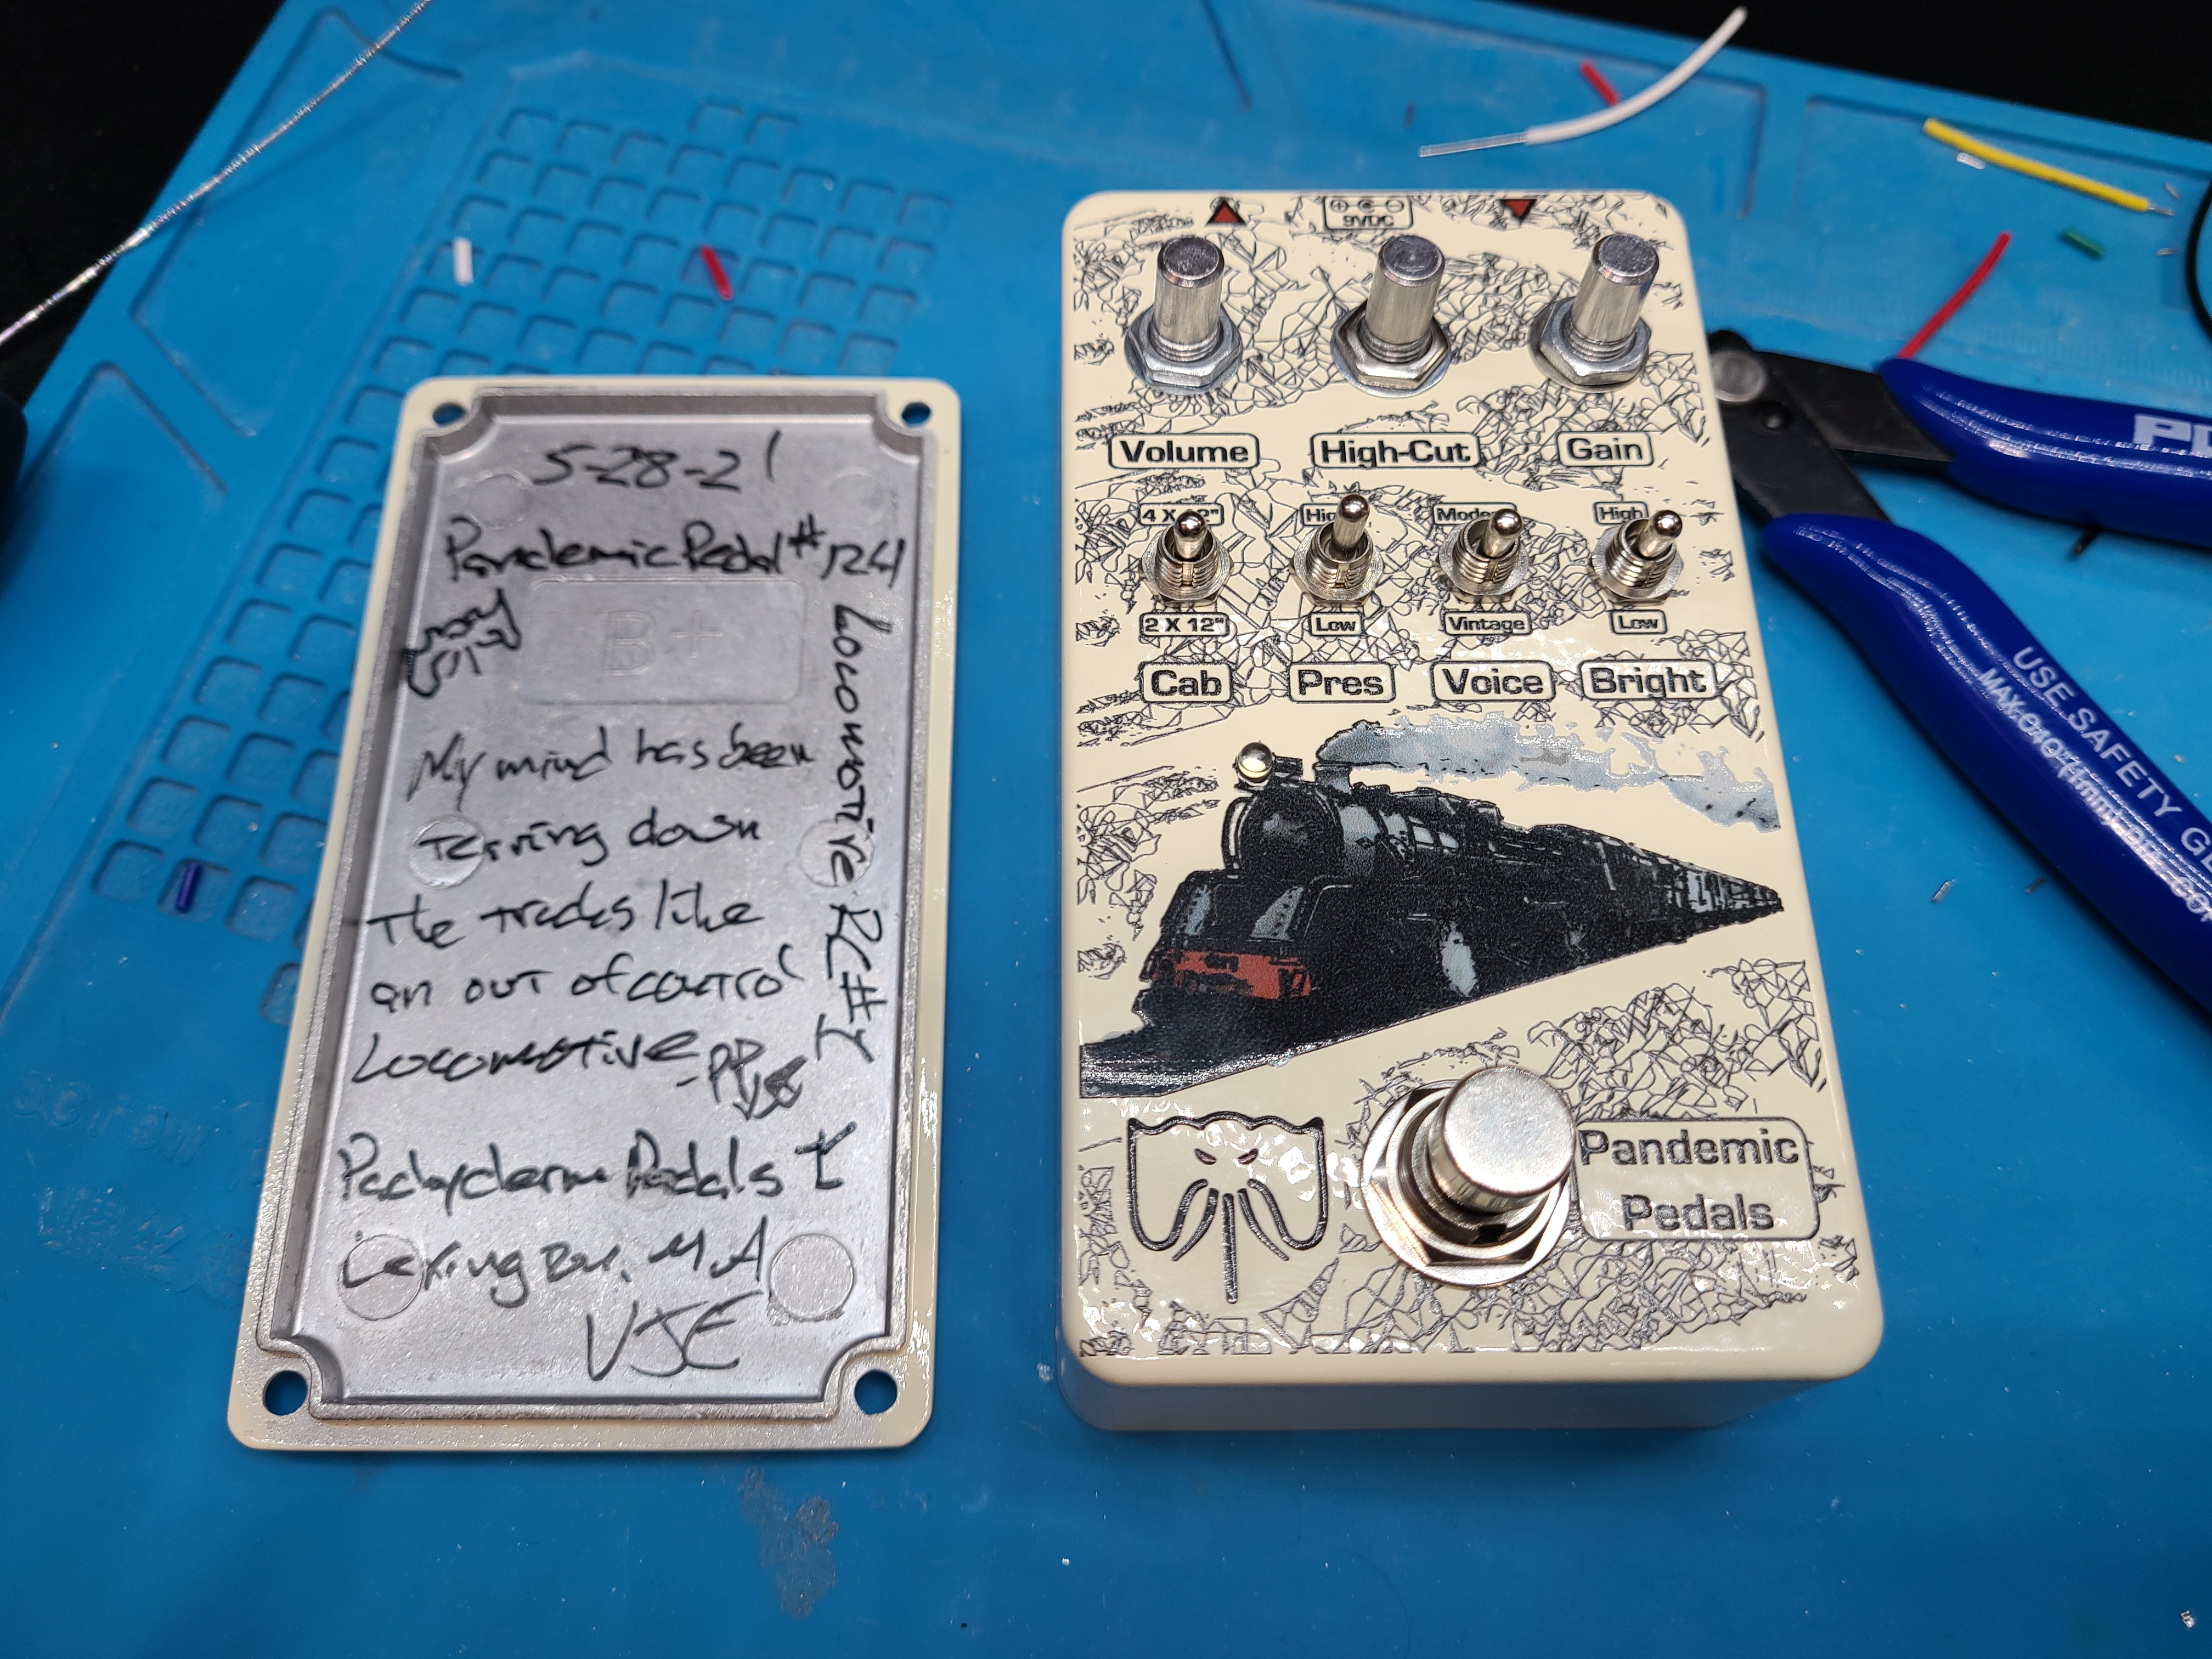 5-28-21
Pandemic Pedal #124
B+
Locomotive RC#
My mind has been
down
The tracks like
an out of control
Locomotive
-PP
Pachyderm Pedals
Lexington, MA
VJE
9VDC
Volume High-Cut Gain
4 X 12" High Modern High
2 X 12" Low Vintage Low
Cab Pres Voice Bright
Pandemic
Pedals
USE SAFETY